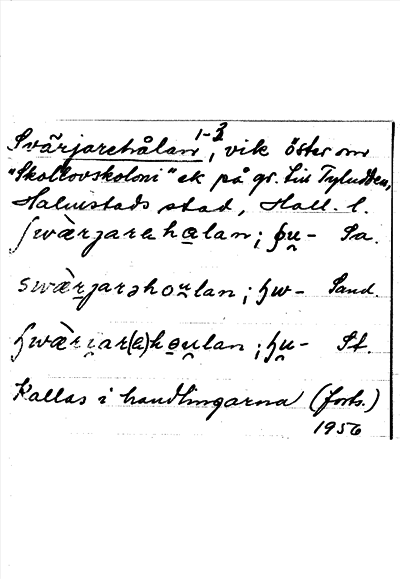 1-3
Svärjarehålan, vik öster om
"Skollovskoloni" ek på gr. till Tyludden,
Halmstads stad, Hall. l.
ʃwæ̀rjarehalan; ʃu̯- Sa.
swæ̀rjarəhoulan; ʃw- Sand.
ʃwæ̀ri̯ar(ə)hau̯lan; ʃu̯- St.
Kallas i handlingarna (forts.)
1956